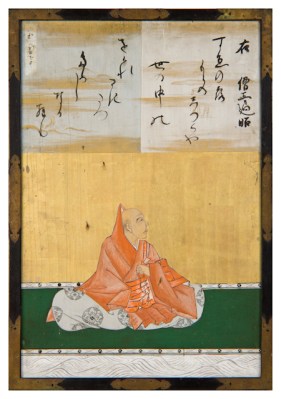 右 僧正遍昭
すゑの露
もとのしつくや
世の中の
をくれ
さきたつ
ためし
なる
らむ